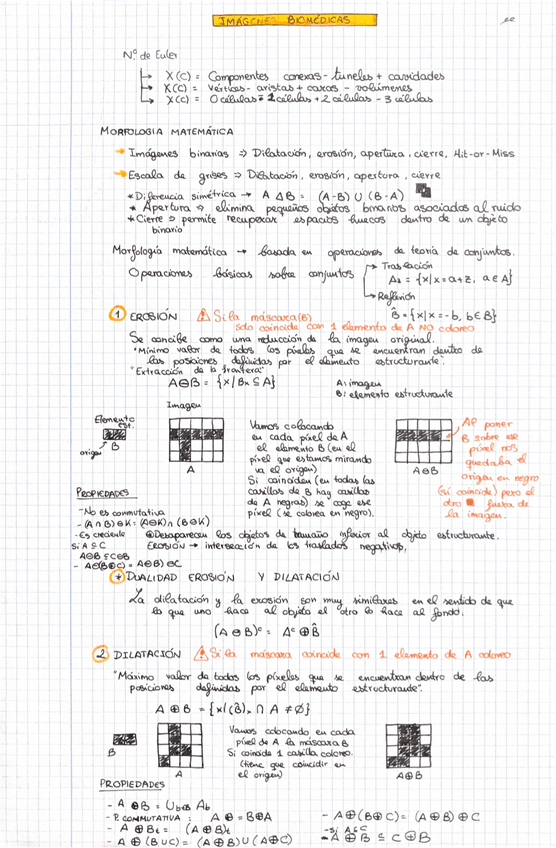 IMÁGENES BIOMÉDICAS
Nº de Euler
X(C) = Componentes conexas - tuneles + cavidades
X(C) = vértices - aristas + caras - volúmenes
X(C) = 0 células - 1 células + 2 células - 3 células
MORFOLOGIA MATEMÁTICA
Imágenes binarias ⇒ Dilatación, erosión, apertura, cierre, Hit-or-Miss
Escala de grises ⇒ Dilatación, erosión, apertura, cierre
* Diferencia simétrica → A Δ B = (A-B) ∪ (B-A)
* Apertura ⇒ elimina pequeños objetos binarios asociados al ruido
* Cierre ⇒ permite recuperar espacios huecos dentro de un objeto
binario
Morfología matemática → basada en operaciones de teoría de conjuntos.
Operaciones básicas sobre conjuntos
Traslación
Az = {x|x = a+z, a ∈ A}
Reflexión
B̂ = {x|x = -b, b ∈ B}
1 EROSIÓN ⚠ Si la máscara (B)
solo coincide con 1 elemento de A NO coloreo
Se concibe como una reducción de la imagen original.
"Mínimo valor de todos los píxeles que se encuentran dentro de
las posiciones definidas por el elemento estructurante".
"Extracción de la frontera"
A⊖B = {x/Bx ⊆ A}
A: imagen
B: elemento estructurante
Imagen
Elemento
est.
origen
B
A
Vamos colocando
en cada píxel de A
el elemento B (en el
píxel que estamos mirando
va el origen)
Si coinciden (en todas las
casillas de B hay casillas
de A negras) se coge ese
píxel (se colorea en negro).
A⊖B
Al poner
B sobre ese
píxel nos
quedaba el
origen en negro
(sí coincide) pero el
otro fuera de
la imagen.
PROPIEDADES
- No es conmutativa
- (A ∩ B)⊖K = (A⊖K) ∩ (B⊖K)
- Es creciente
si A ⊆ C
A⊖B ⊆ C⊖B
- A⊖(B⊕C) = A⊖B) ⊖C
Desaparecen los objetos de tamaño inferior al objeto estructurante.
Erosión → intersección de los traslados negativos.
* DUALIDAD EROSIÓN Y DILATACIÓN
La dilatación y la erosión son muy similares en el sentido de que
lo que uno hace al objeto el otro lo hace al fondo:
(A ⊖ B)ᶜ = Aᶜ ⊕ B̂
2 DILATACIÓN ⚠ Si la máscara coincide con 1 elemento de A coloreo
"Máximo valor de todos los píxeles que se encuentran dentro de las
posiciones definidas por el elemento estructurante".
A ⊕ B = {x|(B̂)x ∩ A ≠ ∅}
B
A
Vamos colocando en cada
píxel de A la máscara B
Si coincide 1 casilla coloreo.
(tiene que coincidir en
el origen)
A⊕B
PROPIEDADES
- A ⊕ B = ∪b∈B Ab
- P. CONMUTATIVA : A ⊕ = B⊕A
- A ⊕ Bt = (A ⊕ B)t
- A ⊕ (B ∪ C) = (A⊕B) ∪ (A⊕C)
- A⊕(B⊕C) = (A⊕B)⊕C
- si A⊆C
A ⊕ B ⊆ C ⊕ B